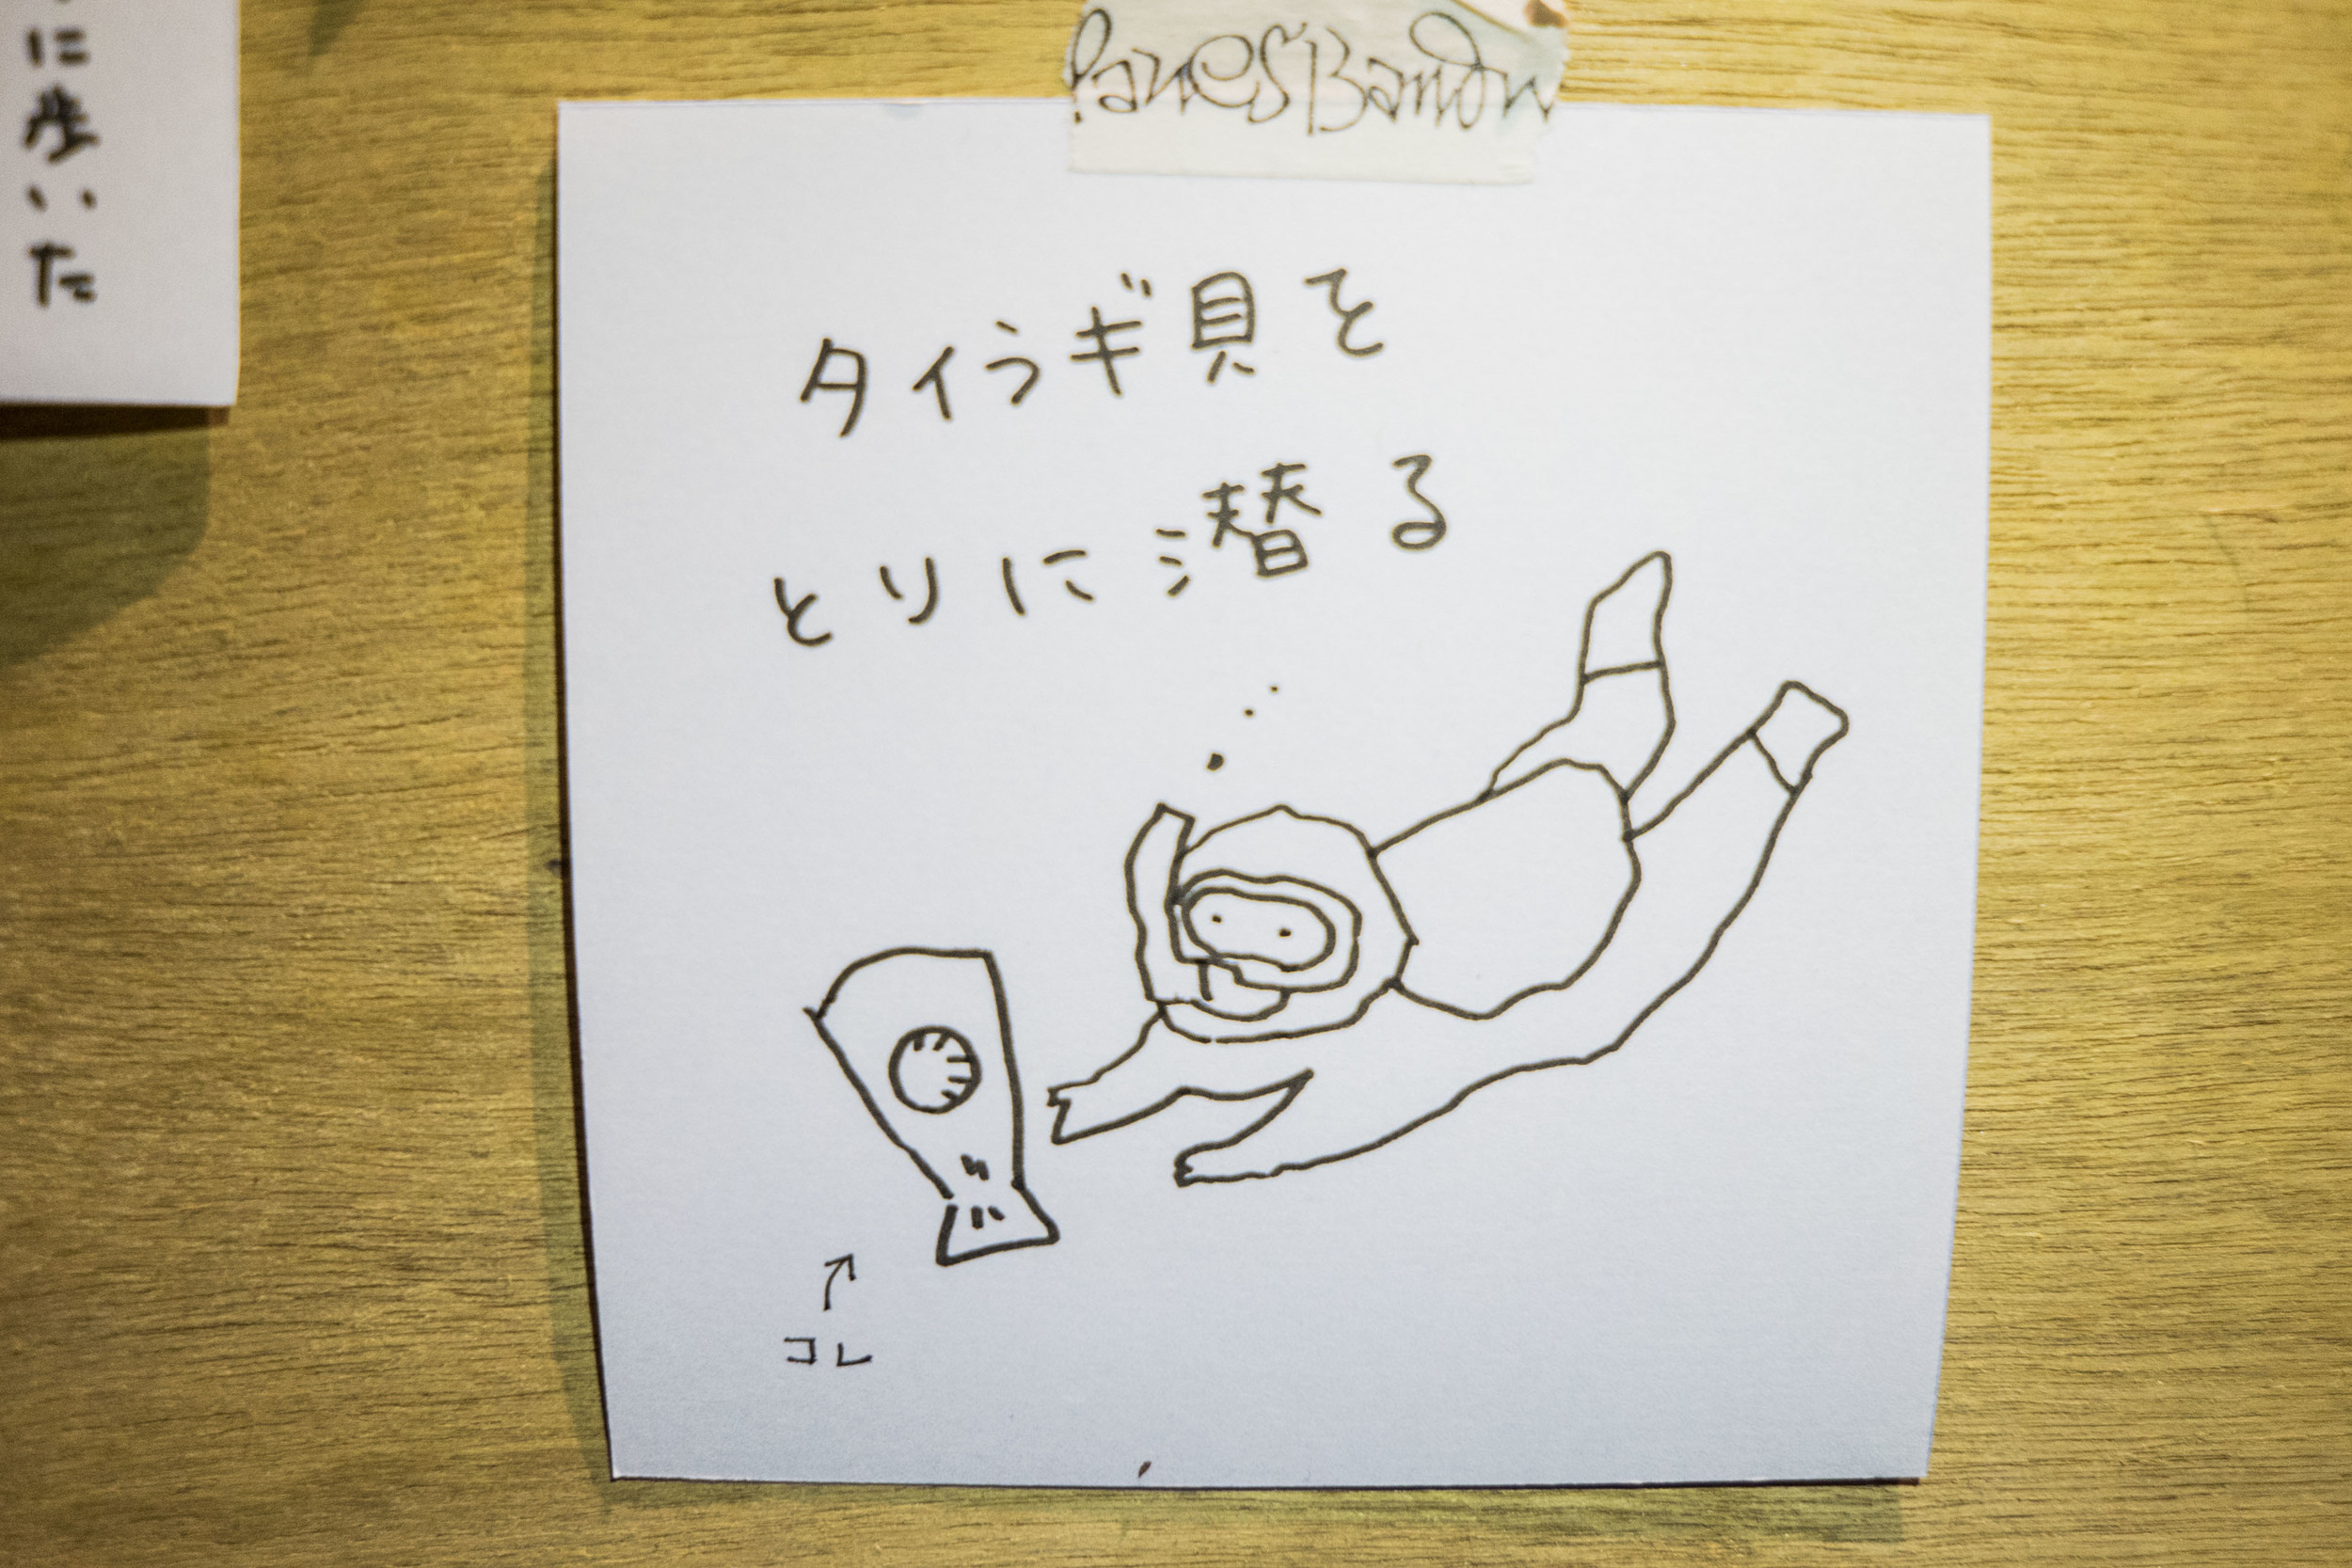 に歩いた
タイラギ貝を
とりに潜る
コレ